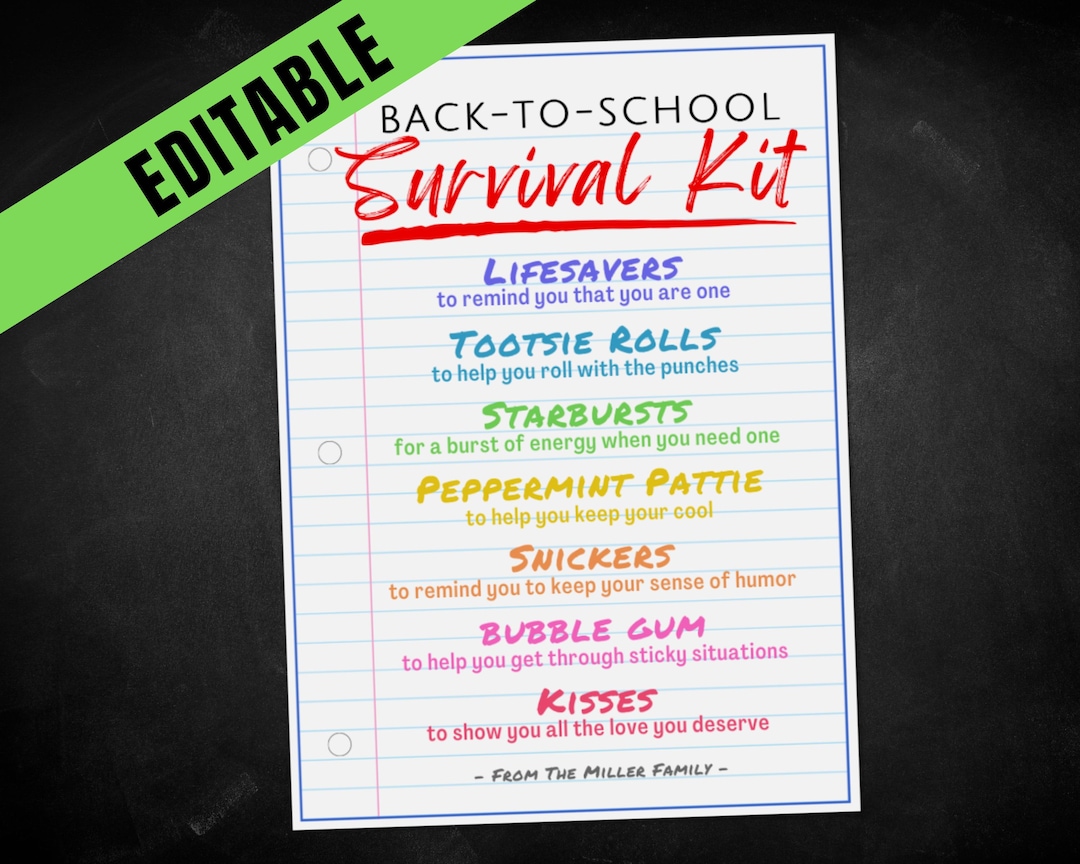 EDITABLE
BACK-TO-SCHOOL
Survival Kit
LIFESAVERS
to remind you that you are one
TOOTSIE ROLLS
to help you roll with the punches
STARBURSTS
for a burst of energy when you need one
PEPPERMINT PATTIE
to help you keep your cool
SNICKERS
to remind you to keep your sense of humor
BUBBLE GUM
to help you get through sticky situations
KISSES
to show you all the love you deserve
- FROM THE MILLER FAMILY -